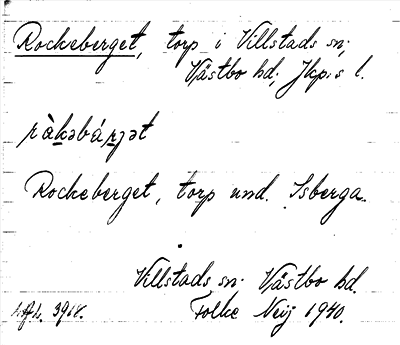 Rockeberget, torp i Villstads sn;
Västbo hd; Jkp:s l.
ràkəbárjət
Rockeberget, torp und. Isberga.
Villstads sn. Västbo hd.
Folke Neij 1940.